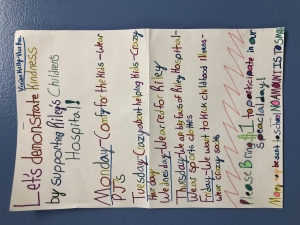 Let's demonstrate Kindness
by supporting Riley's Children's
Hospital!
Monday-Comfy for the Kids-wear
PJ's
Tuesday-Crazy about helping Kids-Crazy
hair day
Wednesday-Wear red for Riley
Thursday-We are big fans of Riley Hospital-
Wear sports clothes
Friday-We want to kick childhood illness-
wear crazy socks
Please Bring to participate in our
Speacial day!
Money may be sent to school NO AMOUNT IS TO SMALL